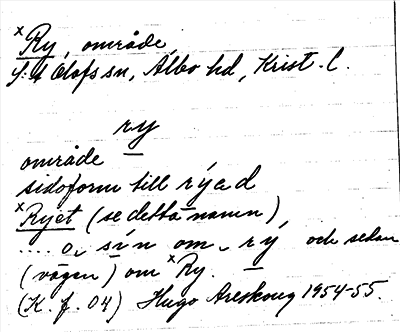 ×Ry, område,
S:t Olofs sn, Albo hd, Krist. l.
ry
område
sidoform till rýed
×Ryet (se detta namn),
.... a, sín om, rý och sedan
(vägen) om ×Ry.
(K. f. 04) Hugo Areskoug 1954-55.